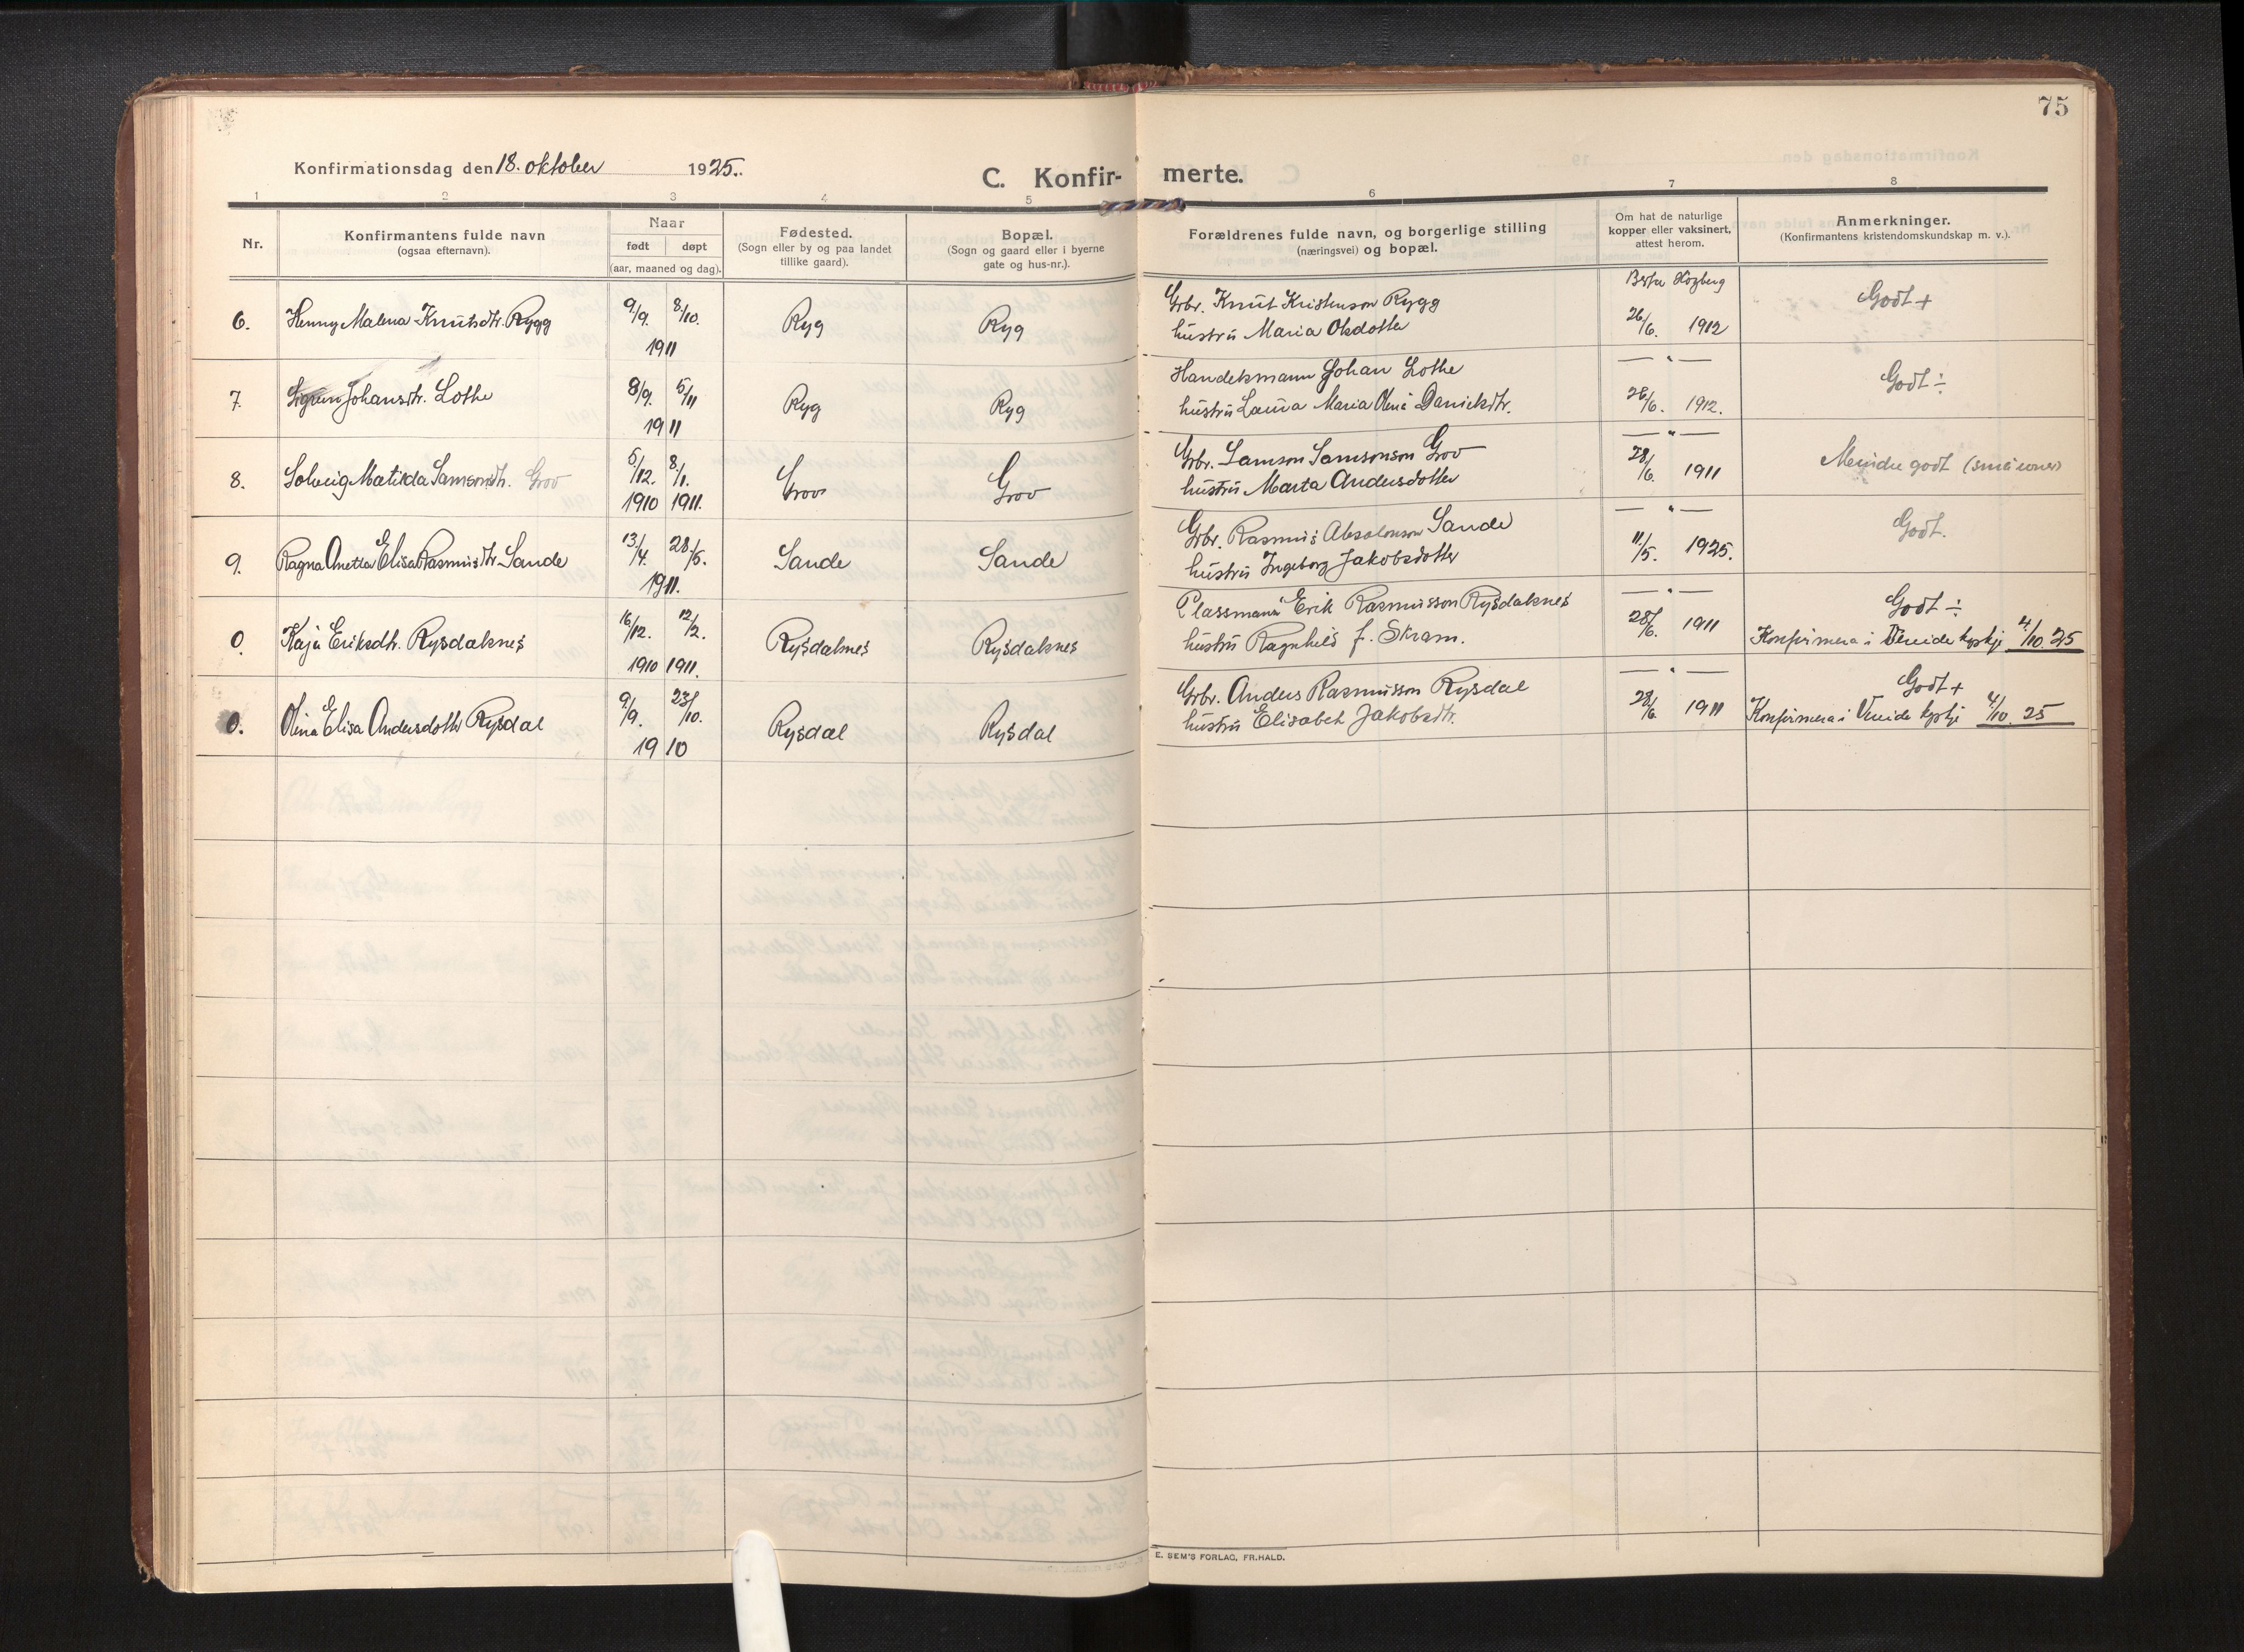 75
Konfirmationsdag den 18. oktober 1925.
C. Konfir-merte.
1 2 3 4 5 6 7 8
Nr.
Konfirmantens fulde navn
(ogsaa efternavn).
Naar
født døpt
(aar, maaned og dag).
Fødested.
(Sogn eller by og paa landet
tillike gaard).
Bopæl.
(Sogn og gaard eller i byerne
gate og hus-nr.).
Forældrenes fulde navn, og borgerlige stilling
(næringsvei) og bopæl.
Om hat de naturlige
kopper eller vaksinert,
attest herom.
Anmerkninger.
(Konfirmantens kristendomskundskap m. v.).
6. Henny Malena Knutsdtr. Rygg 9/9. 8/10. 1911 Ryg Ryg
Grbr. Knut Kristenson Rygg
hustru Maria Olsdotter
26/6. 1912
Godt +
7. Sigrun Johansdtr. Lothe 8/9. 5/11 1911 Ryg Ryg
Handelsmann Johan Lothe
hustru Laura Maria Olena Danielsdtr.
— " —
26/6. 1912.
Godt ÷
8. Solveig Matilda Samsondtr. Grov 5/12. 8/1. 1910 1911. Grov Grov
Grbr. Samson Samsonson Grov
hustru Marta Andersdotter
— " —
28/6. 1911
Mindre godt
9. Ragna Anetta Elisa Rasmusdtr. Sande 13/4. 28/5. 1911. Sande Sande
Grbr. Rasmus Absalonson Sande
hustru Ingeborg Jakobsdotter
— " —
11/5. 1925.
Godt.
0. Kaja Eriksdtr. Rysdalsnes 16/12. 12/2. 1910 1911. Rysdalsnes Rysdalsnes
Plassmann Erik Rasmusson Rysdalsnes
hustru Ragnhild f. Skram.
— " —
28/6. 1911
Godt ÷
Konfirmera i kyrkje 4/10. 25
0. Olina Elisa Andersdotter Rysdal 9/9. 23/10. 1910 Rysdal Rysdal
Grbr. Anders Rasmusson Rysdal
hustru Elisabet Jakobsdtr.
— " —
28/6. 1911
Godt +
Konfirmera i kyrkje 4/10. 25
E. SEM'S FORLAG, FR.HALD.